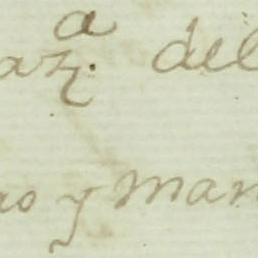 azª. del
ro y man